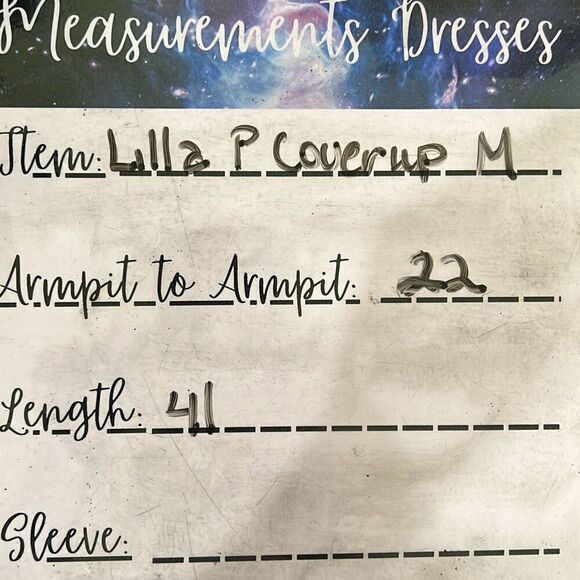 Measurements Dresses
Item: Lilla P Coverup M
Armpit to Armpit: 22
Length: 41
Sleeve: